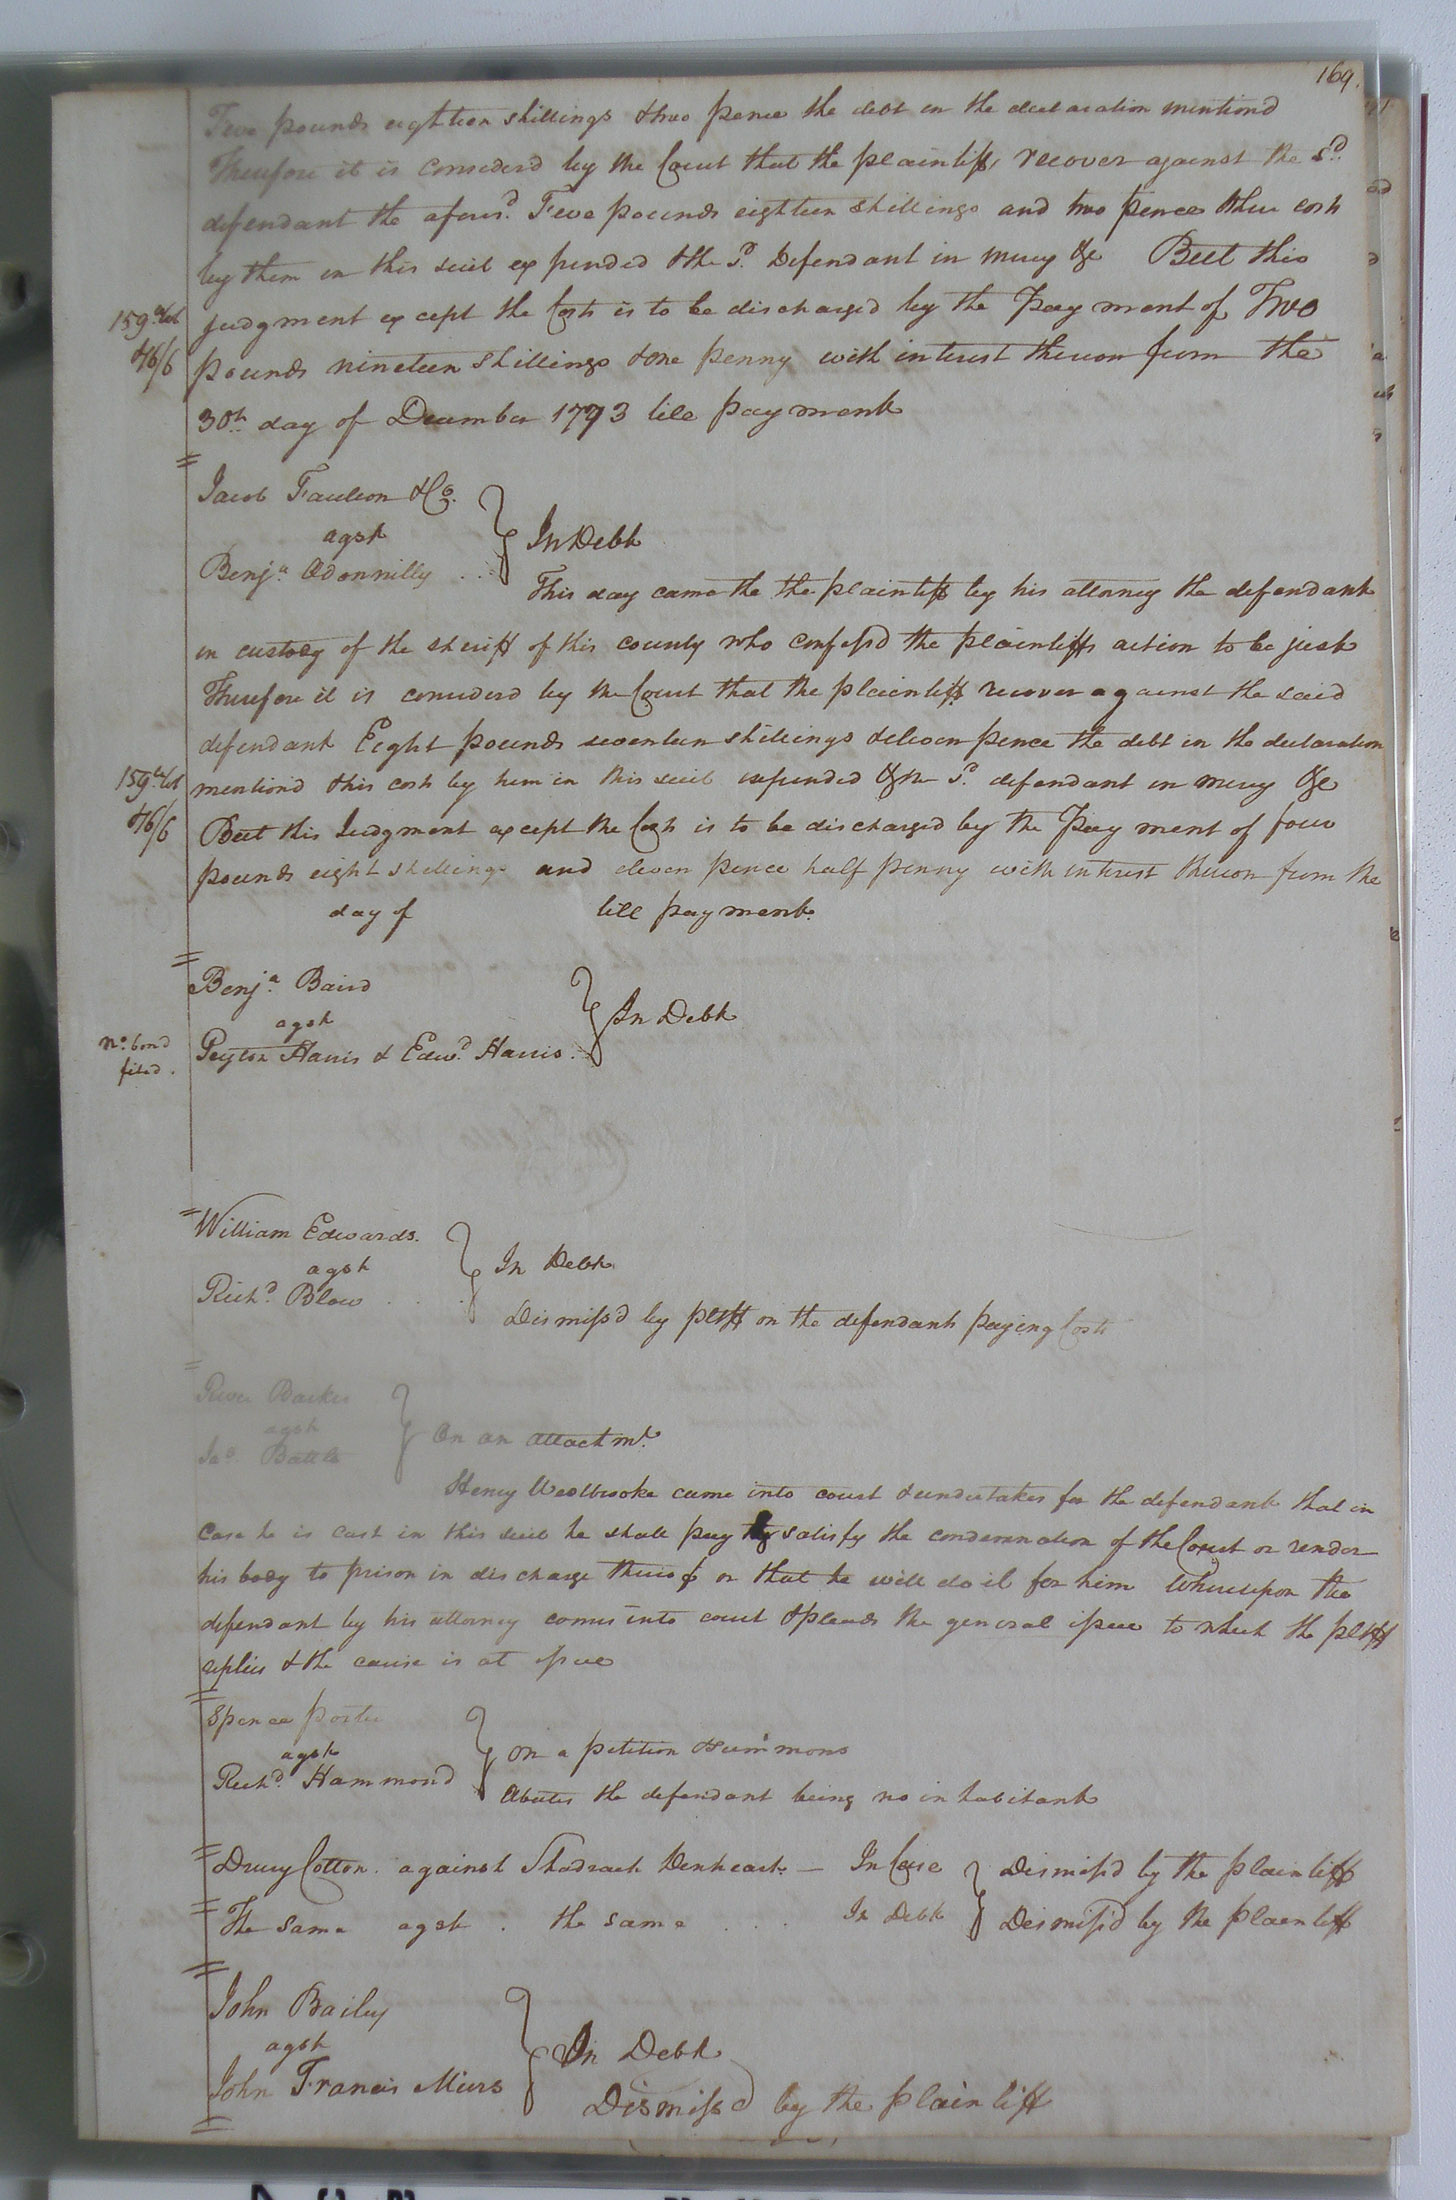 169.
Five pounds eighteen shillings & two pence the debt in the declaration mentiond
Therefore it is considerd by the Court that the plaintiffs recover against the sd.
defendant the aforesd. Five pounds eighteen shillings and two pence & their costs
by them in this suit expended & the sd. Defendant in mercy &c But this
judgment except the Costs is to be discharged by the Payment of Two
pounds nineteen shillings & one penny with interest thereon from the
30th day of December 1793 till payment
159
&6/6
Jacob Faulcon & Co.
agst
Benja. Odonnilly
In Debt
This day came the the plaintiff by his attorney the defendant
in custody of the sheriff of this county who confessd the plaintiffs action to be just
Therefore it is considerd by the Court that the plaintiff recover against the said
defendant Eight pounds seventeen shillings & eleven pence the debt in the declaration
mentiond & his costs by him in this suit expended & the sd. defendant in mercy &c
But this Judgment except the Costs is to be discharged by the Payment of four
pounds eight shillings and eleven pence half penny with interest thereon from the
day of till payment.
159
&6/6
Benja. Baird
agst
Peyton Harris & Edwd. Harris
In Debt
no. bond
filed.
William Edwards.
agst
Richd. Blow
In Debt
Dismissd by pltff on the defendants paying Costs
Barker
agst
Jas. Battle
On an attachmt.
Henry Westbrooke came into court & undertakes for the defendant that in
case he is cast in this suit he shall pay & satisfy the condemnation of the Court or render
his body to prison in discharge thereof or that he will do it for him Whereupon the
defendant by his attorney comes into court & pleads the general issue to which the pltff
replies & the cause is at issue
Spence porter
agst
Richd. Hammond
On a petition & summons
Abates the defendant being no inhabitant
Drury Cotton. against Shadrach Denheart. — In Case Dismissd by the plaintiff
The same agst. the same In Debt Dismissd by the plaintiff
John Bailey
agst
John Francis Miers
In Debt
Dismissd by the plaintiff